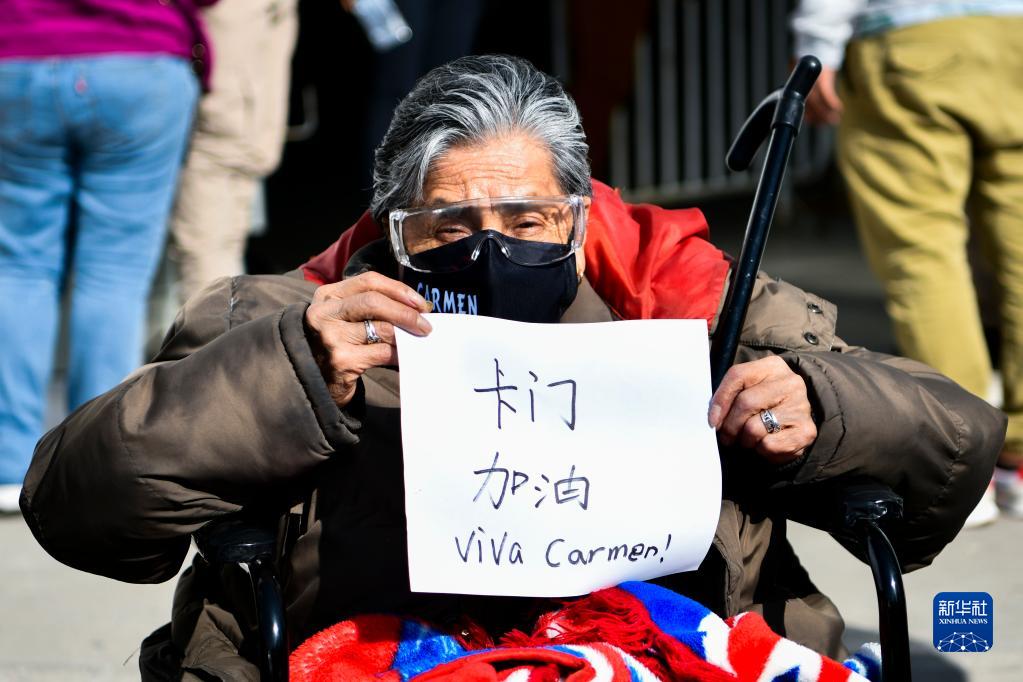 CARMEN
卡门
加油
Viva Carmen!
新华社
XINHUA NEWS